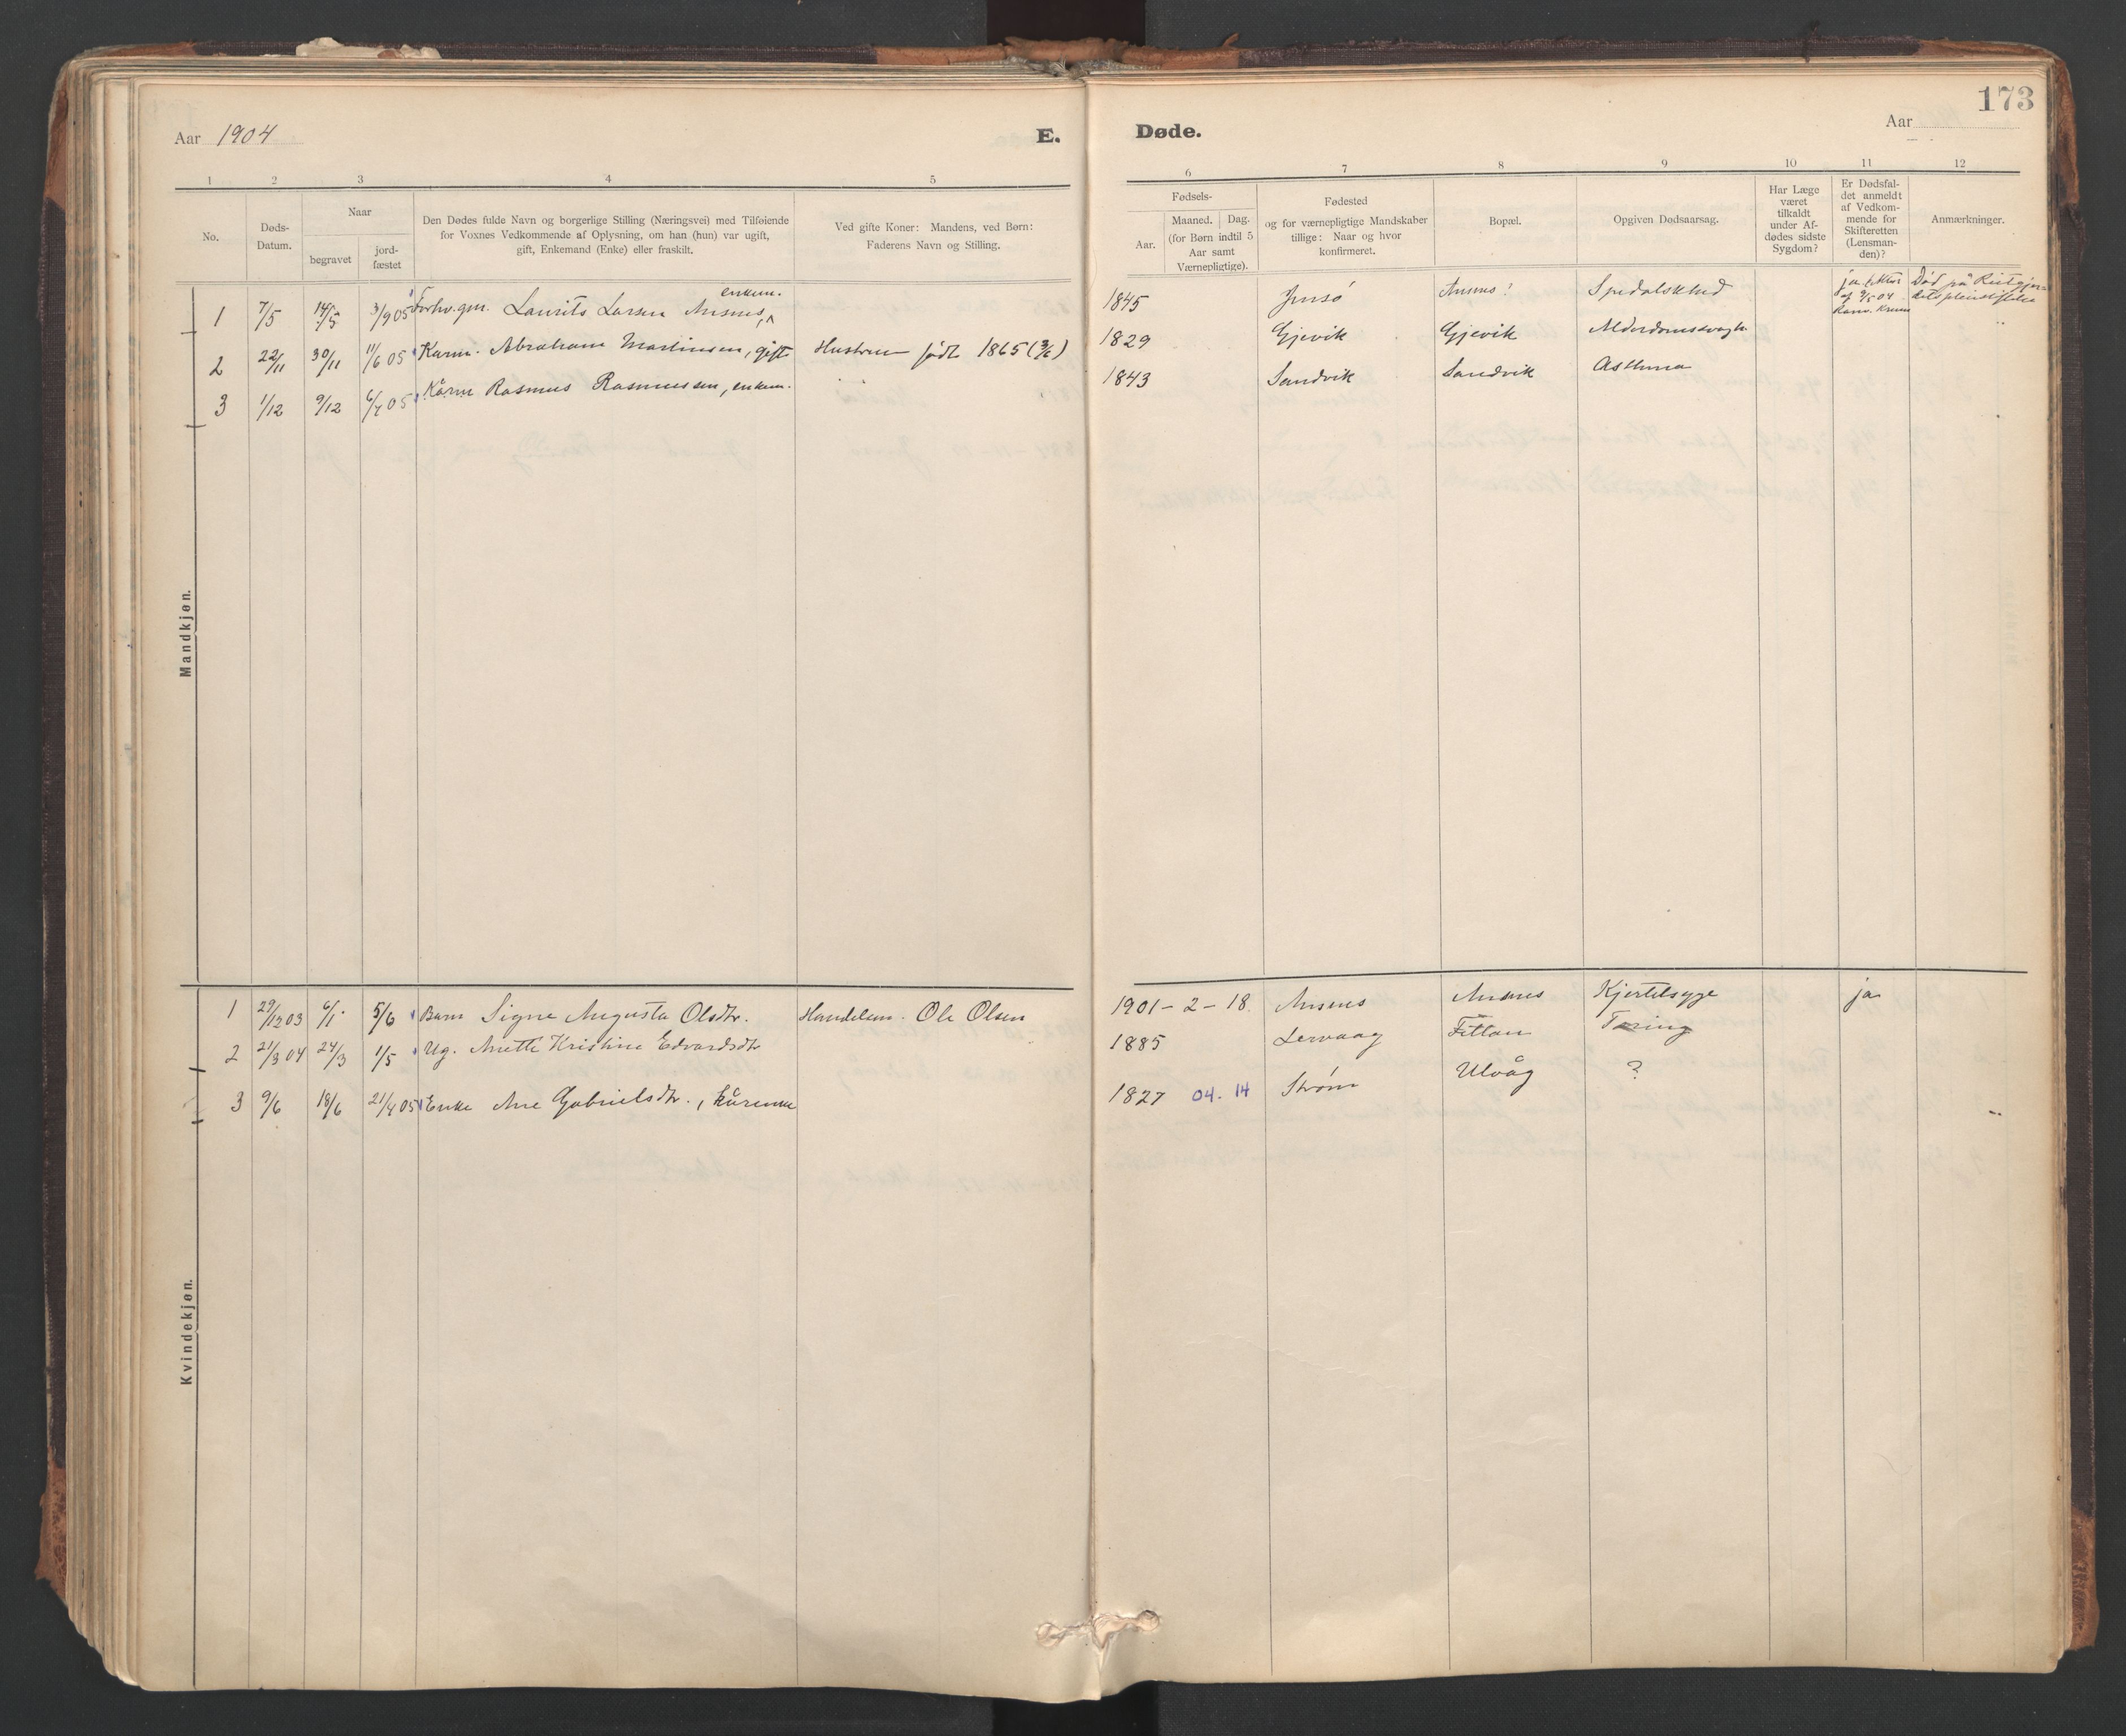 173
Aar 1904
E.
Døde.
Aar
1 2 3 4 5
6 7 8 9 10 11 12
No.
Døds-
Datum.
Naar
begravet
jord-
fæstet
Den Dødes fulde Navn og borgerlige Stilling (Næringsvei) med Tilføiende
for Voxnes Vedkommende af Oplysning, om han (hun) var ugift,
gift, Enkemand (Enke) eller fraskilt.
Ved gifte Koner: Mandens, ved Børn:
Faderens Navn og Stilling.
Fødsels-
Aar.
Maaned. Dag.
(for Børn indtil 5
Aar samt
Værnepligtige).
Fødested
og for værnepligtige Mandskaber
tillige: Naar og hvor
konfirmeret.
Bopæl.
Opgiven Dødsaarsag.
Har Læge
været
tilkaldt
under Af-
dødes sidste
Sygdom?
Er Dødsfal-
det anmeldt
af Vedkom-
mende for
Skifteretten
(Lensman-
den)?
Anmærkninger.
Mandkjøn.
enkem.
1 7/5 14/5 3/9 05 Forhv. gm. Laurits Larsen Ansnes, 1845 Jensø Ansnes! Spedalskhed ja
Død på Reitgjer-
2 22/11 30/11 11/6 05 Kårm. Abraham Martinsen, gift Hustrue født 1865 (3/6) 1829 Gjevik Gjevik Alderdomssvagh.
3 1/12 9/12 6/4 05 Kårm Rasmus Rasmussen, enkem. 1843 Sandvik Sandvik Asthma
Kvindekjøn.
1 29/12 03 6/1 5/6 Barn Signe Augusta Olsdtr. Handelsm. Ole Olsen 1901 - 2 - 18. Ansnes Ansnes Kjertelsyge ja
2 21/3 04 24/3 1/5 Ug. Anette Kristine Edvardsdtr 1885 Lervaag Fittan Tæring
3 9/6 18/6 21/4 05 Enke Ane Gabrielsdtr., kårenke 1827 04. 14 Strøm Ulvåg ?